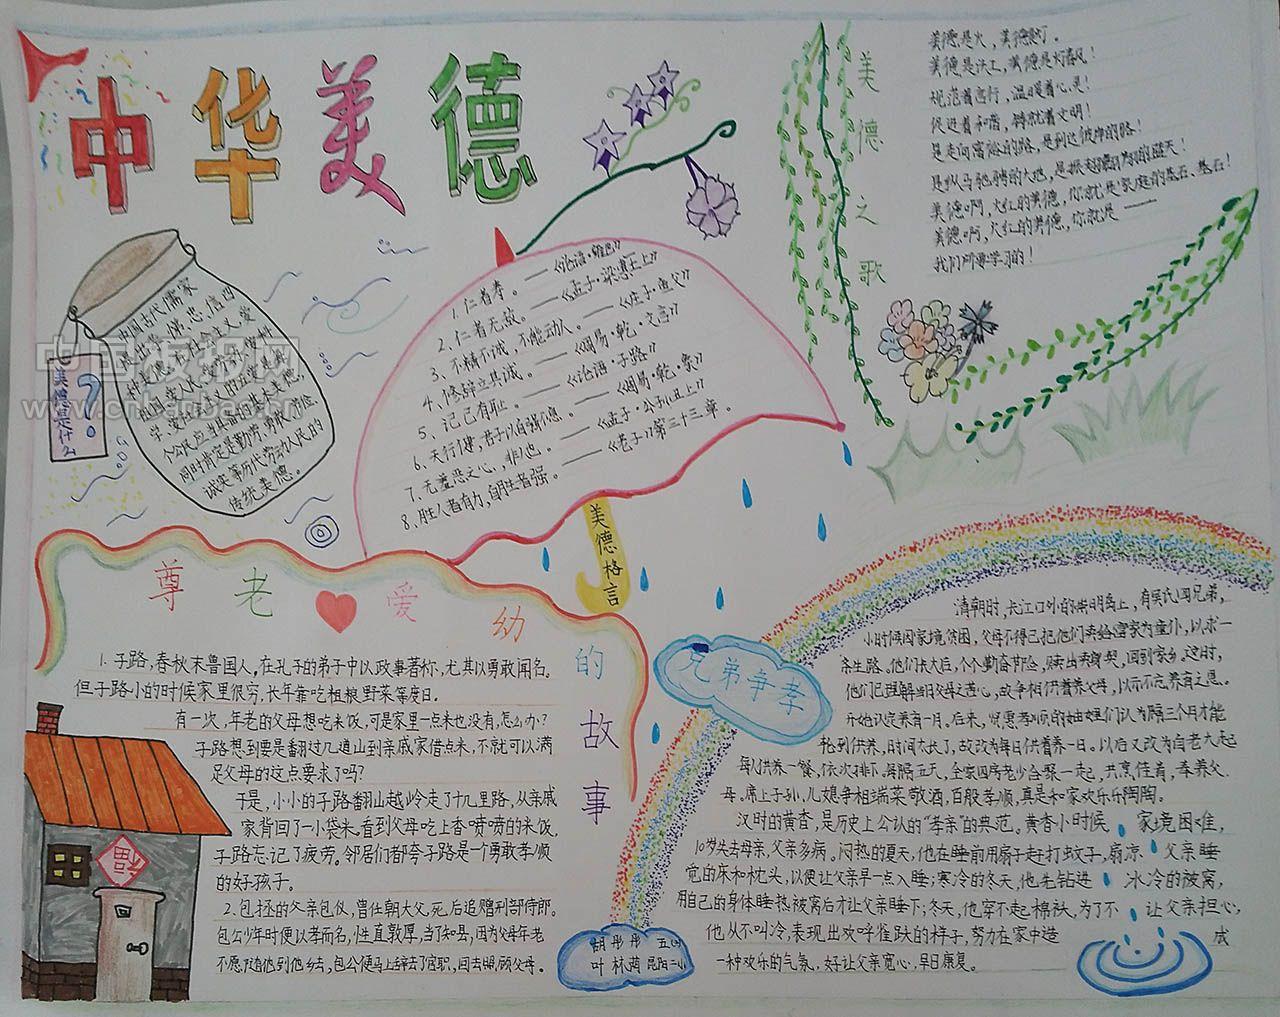 中华美德
美德是什么
?
中国古代儒家
提出常、儒、忠、信四
种美德,而社会主义爱
祖国、爱人民、爱劳动、爱科
学、爱社会主义的五爱是每
个公民应当具备的基本美德,
同时肯定是勤劳、勇敢、节俭、
诚实等历代劳动人民的
传统美德。
1、仁者寿。——《论语·雍也》
2、仁者无敌。——《孟子·梁惠王上》
3、不精不诚,不能动人。——《庄子·渔父》
4、修辞立其诚。——《周易·乾·文言》
5、记己有耻。——《论语·子路》
6、天行健,君子以自强不息。——《周易·乾·象》
7、无羞恶之心,非人也。——《孟子·公孙丑上》
8、胜人者有力,自胜者强。——《老子》第三十三章。
美德格言
美德之歌
美德是火,美德是灯。
美德是沃土,美德是灯春风!
规范着言行,温暖着心灵!
促进着和谐,铸就着文明!
是走向富裕的路,是到达彼岸的路!
是纵马驰骋的大地,是振翅翱翔的蓝天!
美德啊,大红的美德,你就是家庭的基石、基石!
美德啊,大红的美德,你就是——
我们所要学习的!
尊老爱幼的故事
1.子路,春秋末鲁国人,在孔子的弟子中以政事著称,尤其以勇敢闻名。
但子路小的时候家里很穷,长年靠吃粗粮野菜等度日。
有一次,年老的父母想吃米饭,可是家里一点米也没有,怎么办?
子路想到要是翻过几道山到亲戚家借点米,不就可以满
足父母的这点要求了吗?
于是,小小的子路翻山越岭走了十几里路,从亲戚
家背回了一小袋米。看到父母吃上香喷喷的米饭,
子路忘记了疲劳。邻居们都夸子路是一个勇敢孝顺
的好孩子。
2.包拯的父亲包仪,曾任朝大夫,死后追赠刑部侍郎。
包公少年时便以孝而名,性直敦厚,当了知县,因为父母年老
不愿随他到他乡去,包公便马上辞去了官职,回去照顾父母。
福
兄弟争孝
清朝时,长江口外的崇明岛上,有吴氏四兄弟,
小时候因家境贫困,父母不得已把他们卖给富家为童仆,以求一
条生路。他们长大后,个个勤奋节俭,赎出卖身契,回到家乡。这时,
他们已理解当日父母之苦心,故争相供着养父母,以示不忘养育之恩。
开始认定养有一月。后来,贤惠孝顺的妯娌们认为隔三个月才能
轮到供养,时间太长了,故改为每日供着养一日。以后又改为自老大起
每人供养一餐,依次排下。每隔五天,全家四房老少合聚一起,共烹佳肴,奉养父
母。席上子孙、儿媳争相端菜敬酒,百般孝顺,真是和家欢乐乐陶陶。
汉时的黄香,是历史上公认的“孝亲”的典范。黄香小时候,家境困难,
10岁失去母亲,父亲多病。闷热的夏天,他在睡前用扇子赶打蚊子,扇凉父亲睡
觉的床和枕头,以便让父亲早一点入睡;寒冷的冬天,他先钻进冰冷的被窝,
用自己的身体睡热被窝后才让父亲睡下;冬天,他穿不起棉袄,为了不让父亲担心,
他从不叫冷,表现出欢呼雀跃的样子,努力在家中造成
一种欢乐的气氛,好让父亲宽心,早日康复。
胡彤彤 五四
叶林茜 昆阳二小
中国板报网
www.cnbanbao.cn